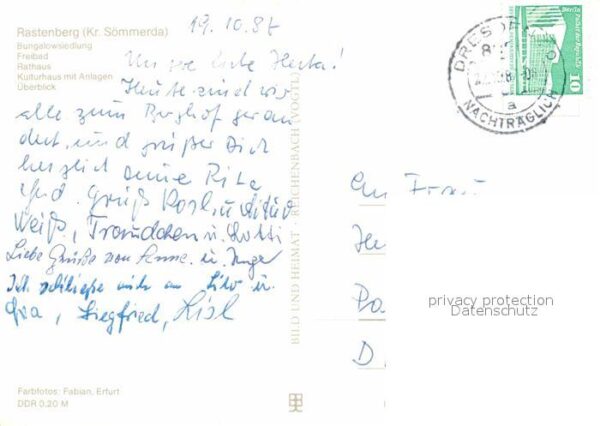 Rastenberg (Kr. Sömmerda)
Bungalowsiedlung
Freibad
Rathaus
Kulturhaus mit Anlagen
Überblick
19.10.87
liebe Herta!
Heute sind wir
alle zum Berghof gewan
dert und grüßen Dich
herzlich deine Rita
und. Grüß
Weiß, Traudchen u. Lotti
Liebe Grüße von Anne u. Inge
Ich schließe mich an Lilo u.
Siegfried, Lisl
Farbfotos: Fabian, Erfurt
DDR 0,20 M
BILD UND HEIMAT · REICHENBACH (VOGTL)
DRESDEN
a
NACHTRÄGLICH
Berlin Palast der Republik
DDR
10
An Frau
He
Da
D
privacy protection
Datenschutz